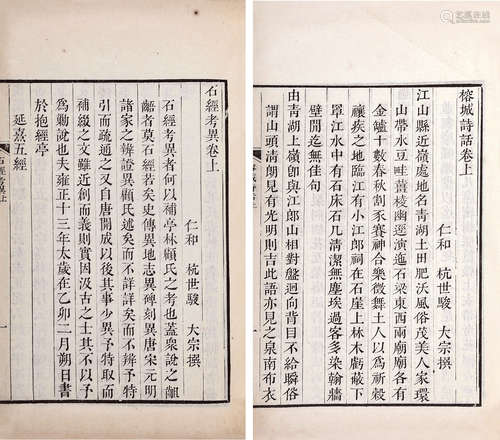 榕城詩話卷上
仁和 杭世駿 大宗撰
江山縣近嶺處地名青湖土田肥沃風俗茂美人家環
山帶水豆畦薑棱幽逕演迤石梁東西兩廟廟各有
金罏十數春秋割豕賽神合樂微舞土人以為祈穀
禳疾之地臨江有小江郎祠在石崖上林木虧蔽下
罩江水中有石床石几清潔無塵埃過客多染翰牆
壁閒迄無佳句
由青湖上嶺卽與江郎山相對盤迴向背目不給瞬俗
謂山頭清朗見有光明則吉此語亦見之泉南布衣
石經考異卷上
仁和 杭世駿 大宗撰
石經考異者何以補亭林顧氏之考也蓋衆說之齟
齬者莫石經若矣史傳異地志異碑刻異唐宋元明
諸家之辨證異顧氏述矣而不詳詳矣而不辨予特
引而疏通之又自唐開成以後其事少異予特取而
補綴之文雖近創而義則實因汲古之士其不以予
為勦說也夫雍正十三年太歲在乙卯二月朔日書
於抱經亭
延熹五經
石經考異上
一